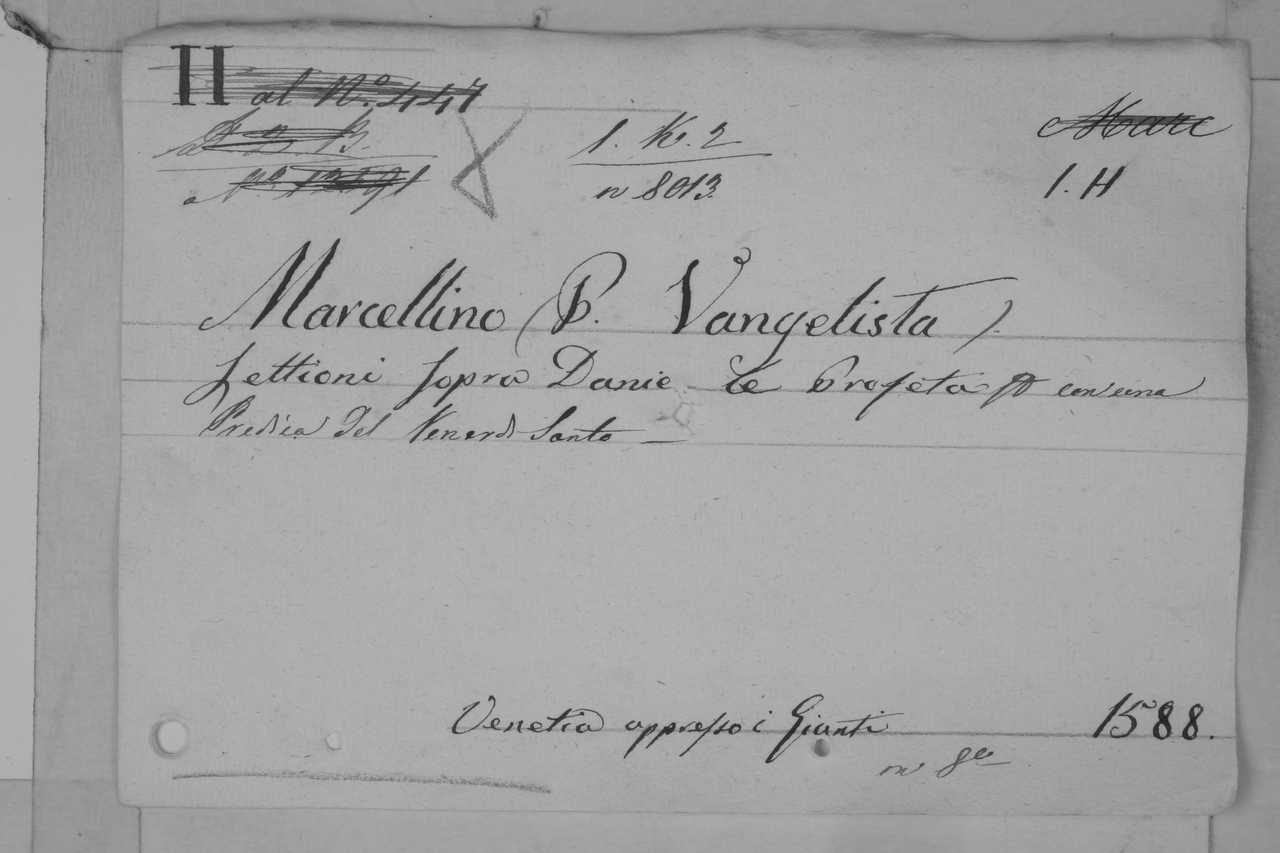 II al N.º 447
1. K. 2
Marc
n 8013
1. H
Marcellino (P. Vangelista).
Lettioni sopra Danie le Profeta con una
Predica del Venerdì Santo —
Venetia appresso i Giunti 1588.
in 8º